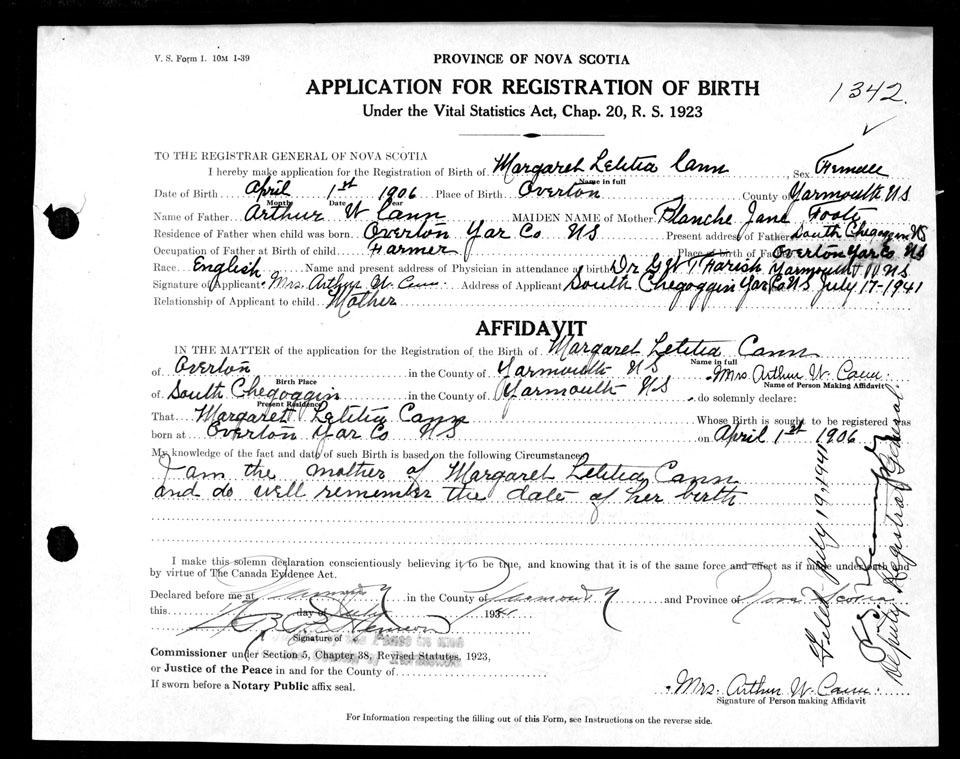 V. S. Form 1. 10M 1-39
PROVINCE OF NOVA SCOTIA
APPLICATION FOR REGISTRATION OF BIRTH
Under the Vital Statistics Act, Chap. 20, R. S. 1923
1342.
TO THE REGISTRAR GENERAL OF NOVA SCOTIA
I hereby make application for the Registration of Birth of Margaret Letitia Cann Sex Female
Name in full
Date of Birth April 1st 1906 Place of Birth Overton County of Yarmouth NS
Month Date Year
Name of Father Arthur W Cann MAIDEN NAME of Mother Blanche Jane Foote
Residence of Father when child was born Overton Yar Co NS Present address of Father South Chegoggin NS
Occupation of Father at Birth of child Farmer Place of Birth of Father Overton Yar Co NS
Race English Name and present address of Physician in attendance at birth Dr G W T Farish Yarmouth NS
Signature of Applicant Mrs. Arthur W. Cann Address of Applicant South Chegoggin Yar Co NS July 17-1941
Relationship of Applicant to child Mother
AFFIDAVIT
IN THE MATTER of the application for the Registration of the Birth of Margaret Letitia Cann
Name in full
of Overton in the County of Yarmouth NS Mrs. Arthur W. Cann
Birth Place Name of Person Making Affidavit
of South Chegoggin in the County of Yarmouth NS do solemnly declare:
Present Residence
That Margaret Letitia Cann Whose Birth is sought to be registered was
born at Overton Yar Co NS on April 1st 1906
My knowledge of the fact and date of such Birth is based on the following Circumstances
I am the mother of Margaret Letitia Cann
and do well remember the date of her birth
I make this solemn declaration conscientiously believing it to be true, and knowing that it is of the same force and effect as if made under oath and
by virtue of The Canada Evidence Act.
Declared before me at Yarmouth in the County of Yarmouth and Province of Nova Scotia
this day of July 1941
Signature of
Commissioner under Section 5, Chapter 38, Revised Statutes, 1923,
or Justice of the Peace in and for the County of
If sworn before a Notary Public affix seal.
Mrs. Arthur W. Cann
Signature of Person making Affidavit
For Information respecting the filling out of this Form, see Instructions on the reverse side.
Filed July 19, 1941
Deputy Registrar General